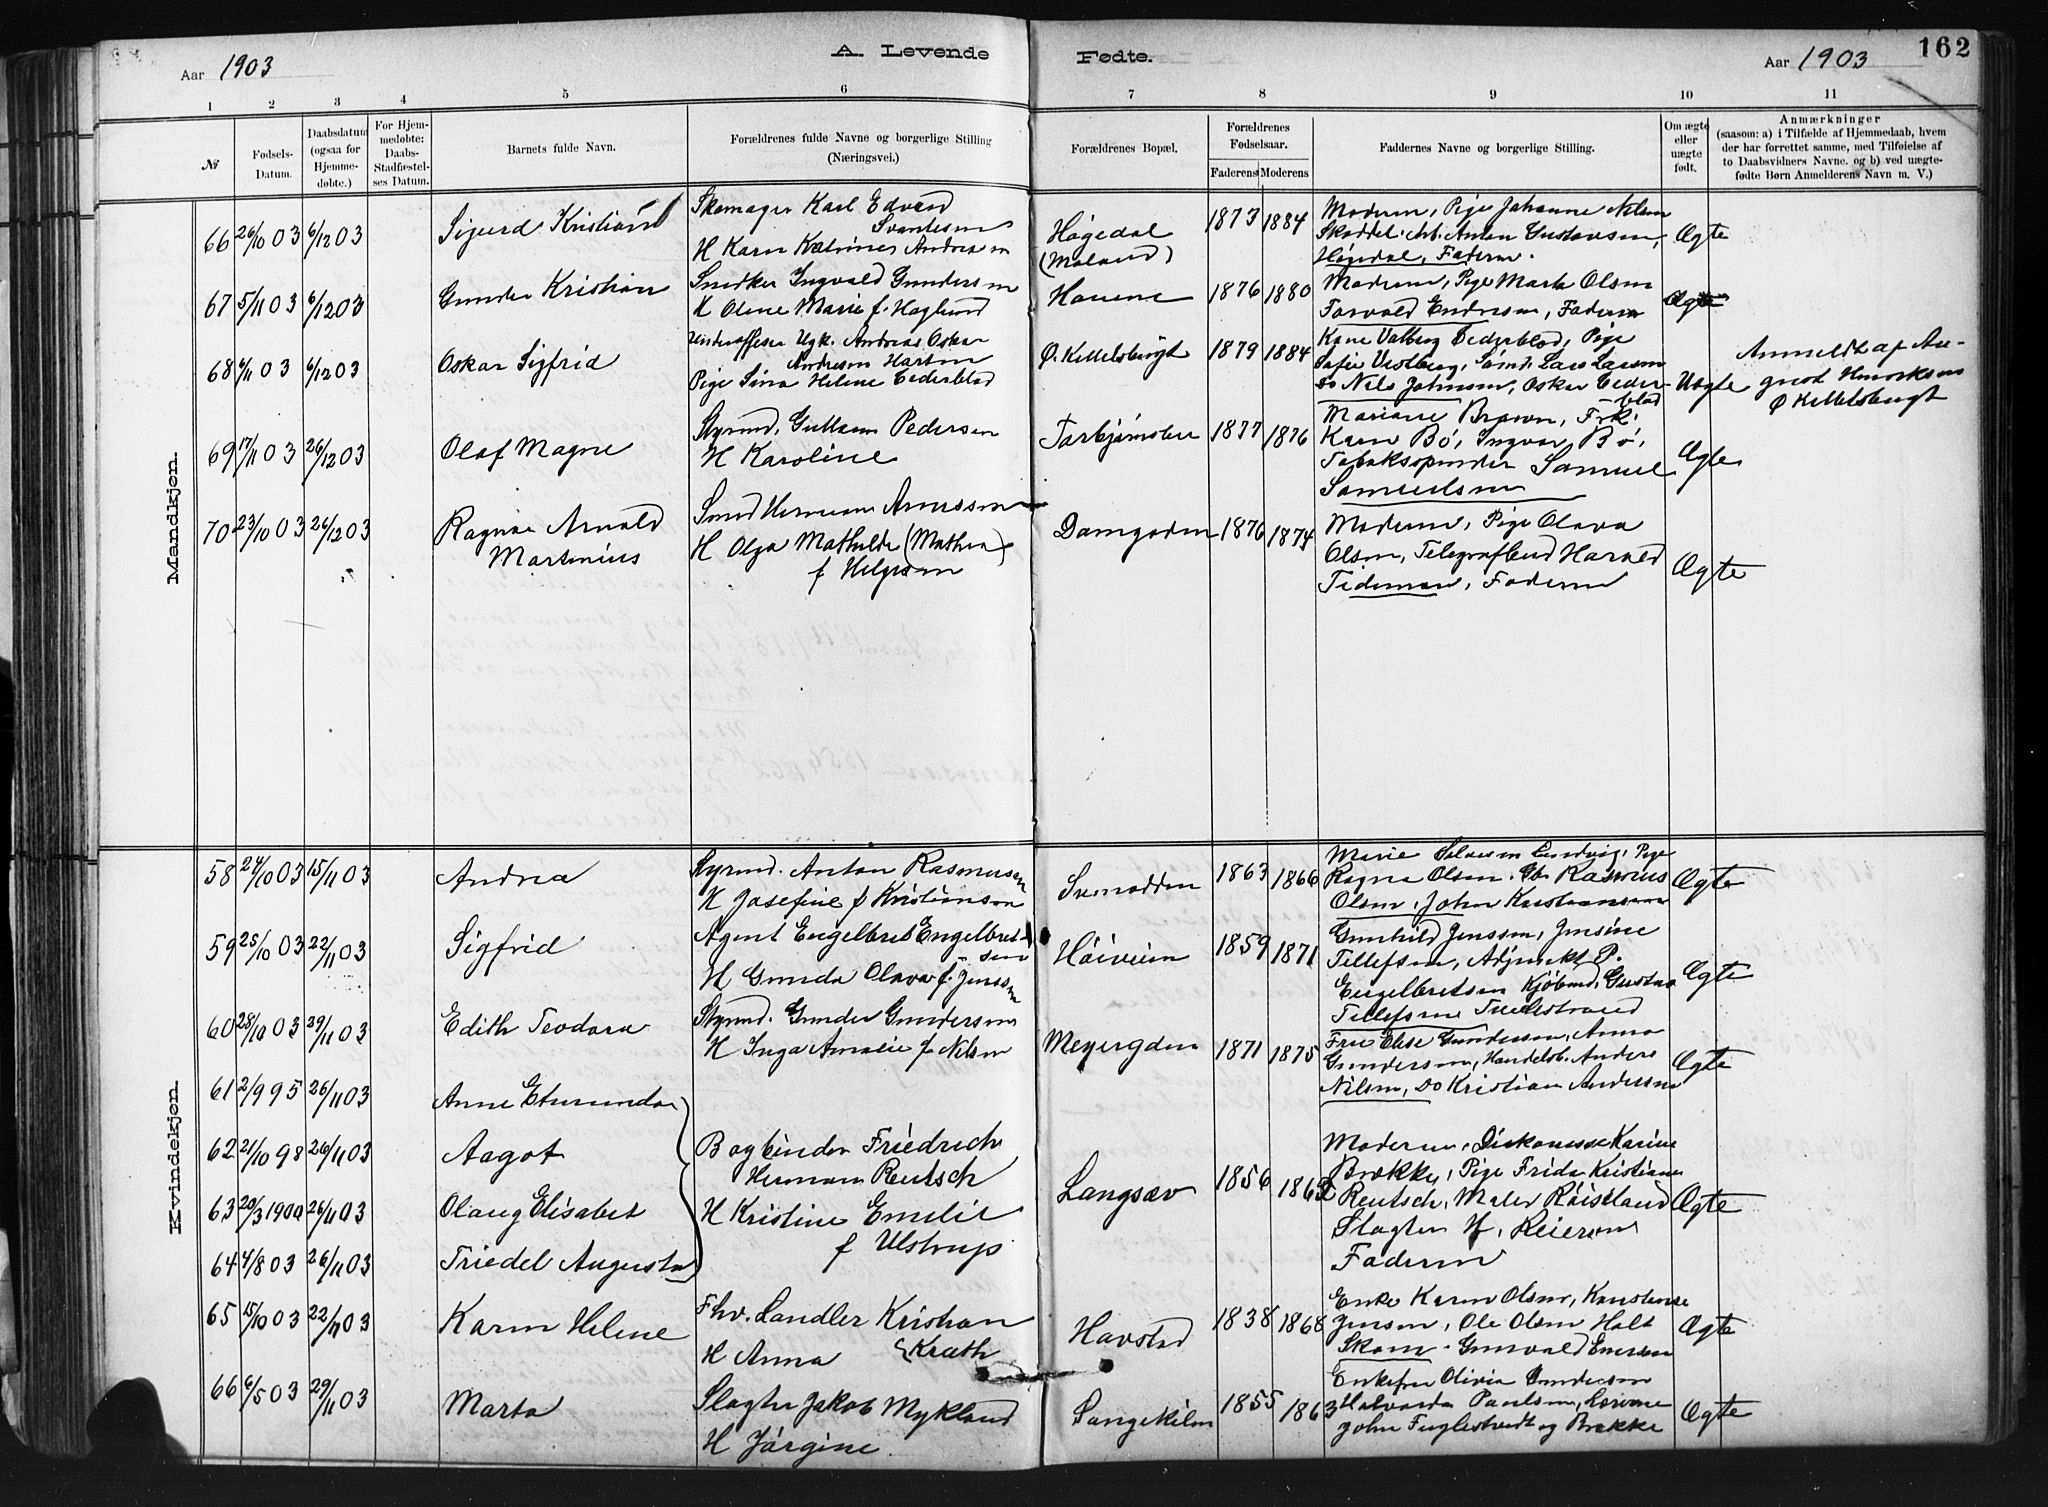 Aar 1903
A. Levende
Fødte.
Aar 1903
162
1 2 3 4 5 6 7 8 9 10 11
№
Fødsels-Datum.
Daabsdatum (ogsaa for Hjemme-døbte.)
For Hjem-medøbte: Daabs-Stadfæstel-ses Datum.
Barnets fulde Navn.
Forældrenes fulde Navne og borgerlige Stilling (Næringsvei.)
Forældrenes Bopæl.
Forældrenes Fødselsaar.
Faderens Moderens
Faddernes Navne og borgerlige Stilling.
Om ægte eller uægte født.
Anmærkninger
(saasom: a) i Tilfælde af Hjemmedaab, hvem
der har forrettet samme, med Tilføielse af
to Daabsvidners Navne, og b) ved uægte-
fødte Børn Anmelderens Navn m. V.)
Mandkjøn.
66 26/10 03 6/12 03 Sigurd Kristian
Skomager Karl Edvard
Svantesen
H Karn Katrines Andreasen
Høgedal
(Moland)
1873 1884
Moderen, Pige Johanne Nilsen
Anton Gustavsen,
Høgedal, Faderen.
Ægte
67 5/11 03 6/12 03 Gunder Kristian
Snedker Ingvald Gundersen
H Olene Marie f. Haglund
Havene
1876 1880
Moderen, Pige Marta Olsen
Torvald Endresen, Faderen
Ægte
68 6/11 03 6/12 03 Oskar Sigfrid
Underofficer Ugk. Andreas Oskar
Andresen
Pige Sina Helene Cederblad
Ø. Kittelsbugt
1879 1884
Kone Valborg Cederblad, Pige
Sofie Vestberg, Lars Larsen
Do Nils Johnsen, Oskar Ceder-
blad
Uægte
Anmeldt af Au-
gust Henriksen
Ø Kittelsbugt
69 17/11 03 26/12 03 Olaf Magne
Styrmd. Guttorm Pedersen
H Karoline
Torbjørnsbu
1877 1876
Mariane Brown, Frk.
Karn Bó, Ingvar Bó,
Tobaksspinder Samuel
Samuelsen
Ægte
70 23/10 03 26/12 03 Ragnar Arnold
Martinius
Smed Herman Arnessen
H Olga Mathilde (Mathea)
f Helgesen
Damgaden
1876 1874
Moderen, Pige Olava
Olsen, Telegrafbud Harald
Tideman, Faderen
Ægte
Kvindekjøn.
58 24/10 03 15/11 03 Andrea
Styrmd. Anton Rasmusen
H Josefine f Kristiansen
Svinodden
1863 1866
Marie Salvesen Lundvig, Pige
Ragna Olsen. Rasmus
Olsen, John Kristiansen
Ægte
59 25/10 03 22/11 03 Sigfrid
Agent Engelbret Engelbret-
sen
H Gunda Olava f. Jenssen
Høiveien
1859 1871
Gunhild Jenssen, Jensine
Tellefsen, Adjunkt P.
Engelbretsen Kjöbmd, Gustav
Tellefsen Tvedestrand
Ægte
60 28/10 03 29/11 03 Edith Teodora
Styrmd. Gunder Gundersen
H Inga Amalie f Nilsen
Meyergden
1871 1875
Frue Elise Gundersen, Anna
Gundersen, Handelsb. Anders
Nilsen, Do Kristian Andersen
Ægte
61 2/9 95 26/11 03 Anne
62 21/10 98 26/11 03 Aagot
63 20/3 1900 26/11 03 Olaug Elisabet
64 4/8 03 26/11 03 Friedel Augusta
Bogbinder Friedrich
Herman Reutsch
H Kristine Emilie
f Ulstrup
Langsæv
1856 1862
Moderen, Diakonesse Karine
Brække, Pige Frida Kristiane
Reutsch, Maler Röiseland
Slagter H. Reiersen
Faderen
Ægte
65 15/10 03 22/11 03 Karen Helene
Fhv. Landhdler Kristian
Krath
H Anna
Havstad
1838 1868
Enke Karen Olsen, Konstanse
Jensen, Ole Olsen Holt
Skom. Gunvald Evensen
Ægte
66 6/5 03 29/11 03 Marta
Slagter Jakob Mykland
H Jørgine
Songekilen
1855 1863
Enkefru Olivia Gundersen
Halvarda Paulsen,
John Fuglestvedt og Brække
Ægte